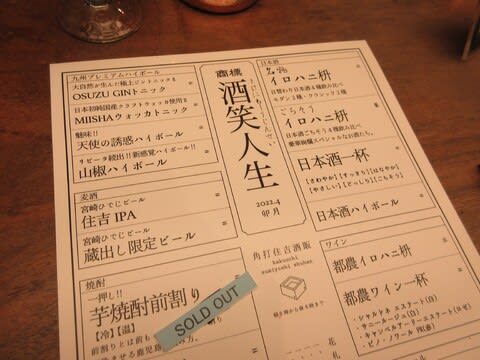 九州プレミアムハイボール
大自然が生んだ極上ジントニック!!
OSUZU GINトニック
日本初純国産クラフトウォッカ使用!!
MIISHAウォッカトニック
魅味!!
天使の誘惑ハイボール
リピータ続出!!新感覚ハイボール!!
山椒ハイボール
麦酒
宮崎ひでじビール
住吉 IPA
宮崎ひでじビール
蔵出し限定ビール
焼酎
一押し!!
芋焼酎前割り
【冷】【温】
前割りとは前も
させる鹿児島
SOLD OUT
商標
酒笑人生
2022.4
卯月
角打住吉酒販
kakuuchi
sumiyoshi shuhan
日本酒
イロハニ枡
日替わり日本酒4種飲み比べ
モダン2種・クラシック2種
ごちそう
イロハニ枡
日本酒ごちそう4種飲み比べ
豪華絢爛スペシャルなお酒たち。
日本酒一杯
【さわやか】【すっきり】【はなやか】
【やさしい】【どっしり】【ごちそう】
日本酒ハイボール
ワイン
都農イロハニ枡
都農ワイン一杯
・シャルドネ エステート(白)
・サニールージュ(白)
・キャンベルアーリーエステート(ロゼ)
・ピノ・ノワール